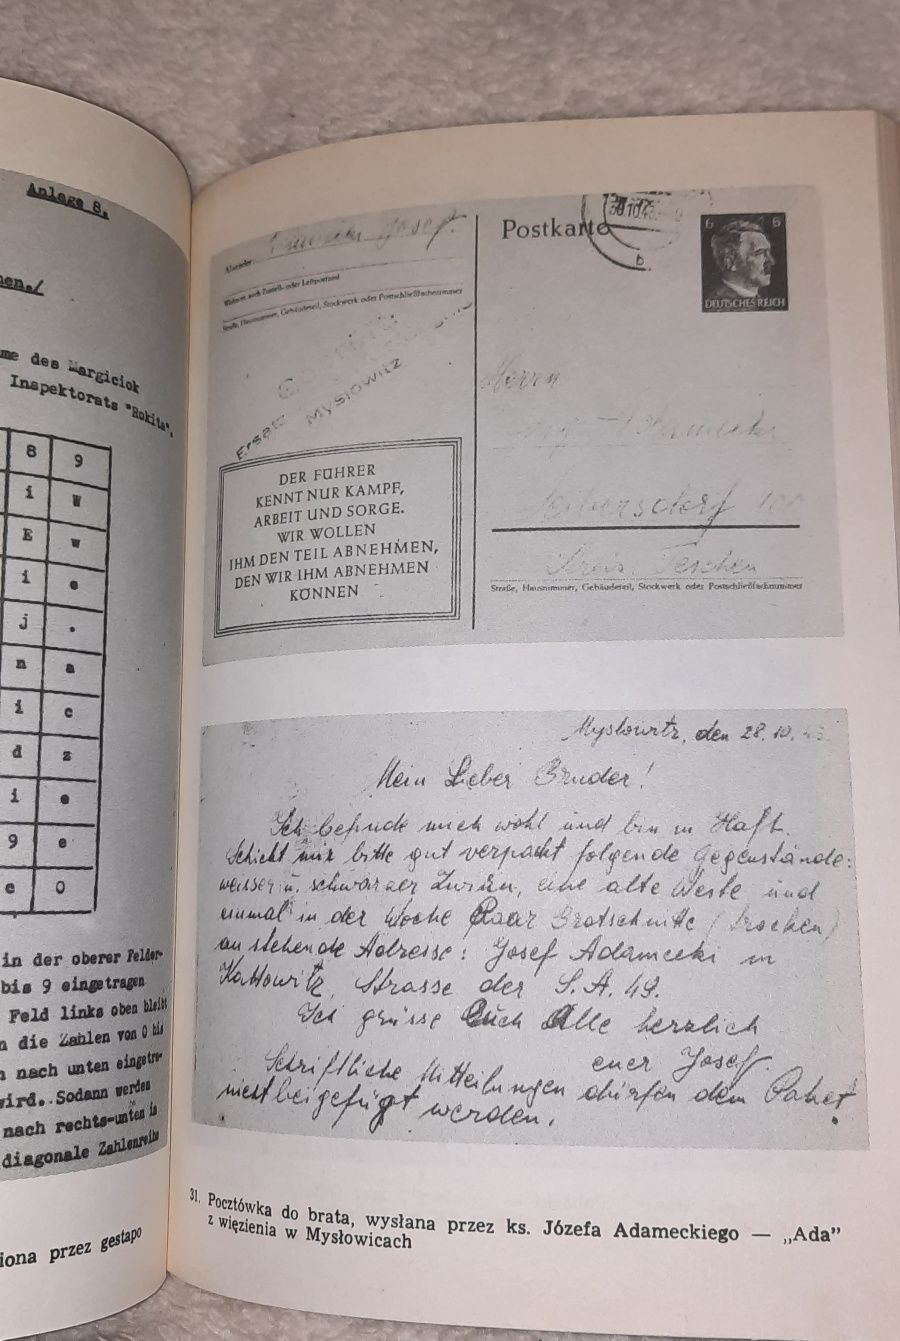 Anlage 8.
nen./
me des Margiciok
Inspektorats "Rokita".
8 9
i W
E w
i e
j .
n a
i c
d z
i e
9 e
e O
in der oberer Felder-
bis 9 eingetragen
Feld links oben bleibt
n die Zahlen von 0 bis
n nach unten eingetra-
wird. Sodann werden
nach rechts-unten in
diagonale Zahlenreihe
iona przez gestapo
Absender: Josef
Wohnort, auch Zustell- oder Leitpostamt
Straße, Hausnummer, Gebäudeteil, Stockwerk oder Postschließfachnummer
Ersatz
Myslowitz
DER FÜHRER
KENNT NUR KAMPF,
ARBEIT UND SORGE.
WIR WOLLEN
IHM DEN TEIL ABNEHMEN,
DEN WIR IHM ABNEHMEN
KÖNNEN
Postkarte
30.10.43
b
6 6
DEUTSCHES REICH
Herrn
Seibersdorf 100
Kreis Teschen
Straße, Hausnummer, Gebäudeteil, Stockwerk oder Postschließfachnummer
Myslowitz, den 28.10.43.
Mein Lieber Bruder!
Ich befinde mich wohl und bin in Haft.
Schickt mir bitte gut verpackt folgende Gegenstände:
weisser u. schwarzer Zwirn, eine alte Weste und
einmal in der Woche Paar Brotschnitte (trocken)
an stehende Adresse: Josef Adamecki in
Kattowitz, Strasse der S.A. 49.
Ich grüsse Euch Alle herzlich
euer Josef.
Schriftliche Mitteilungen dürfen dem Paket
nicht beigefügt werden.
31. Pocztówka do brata, wysłana przez ks. Józefa Adameckiego — „Ada”
z więzienia w Mysłowicach